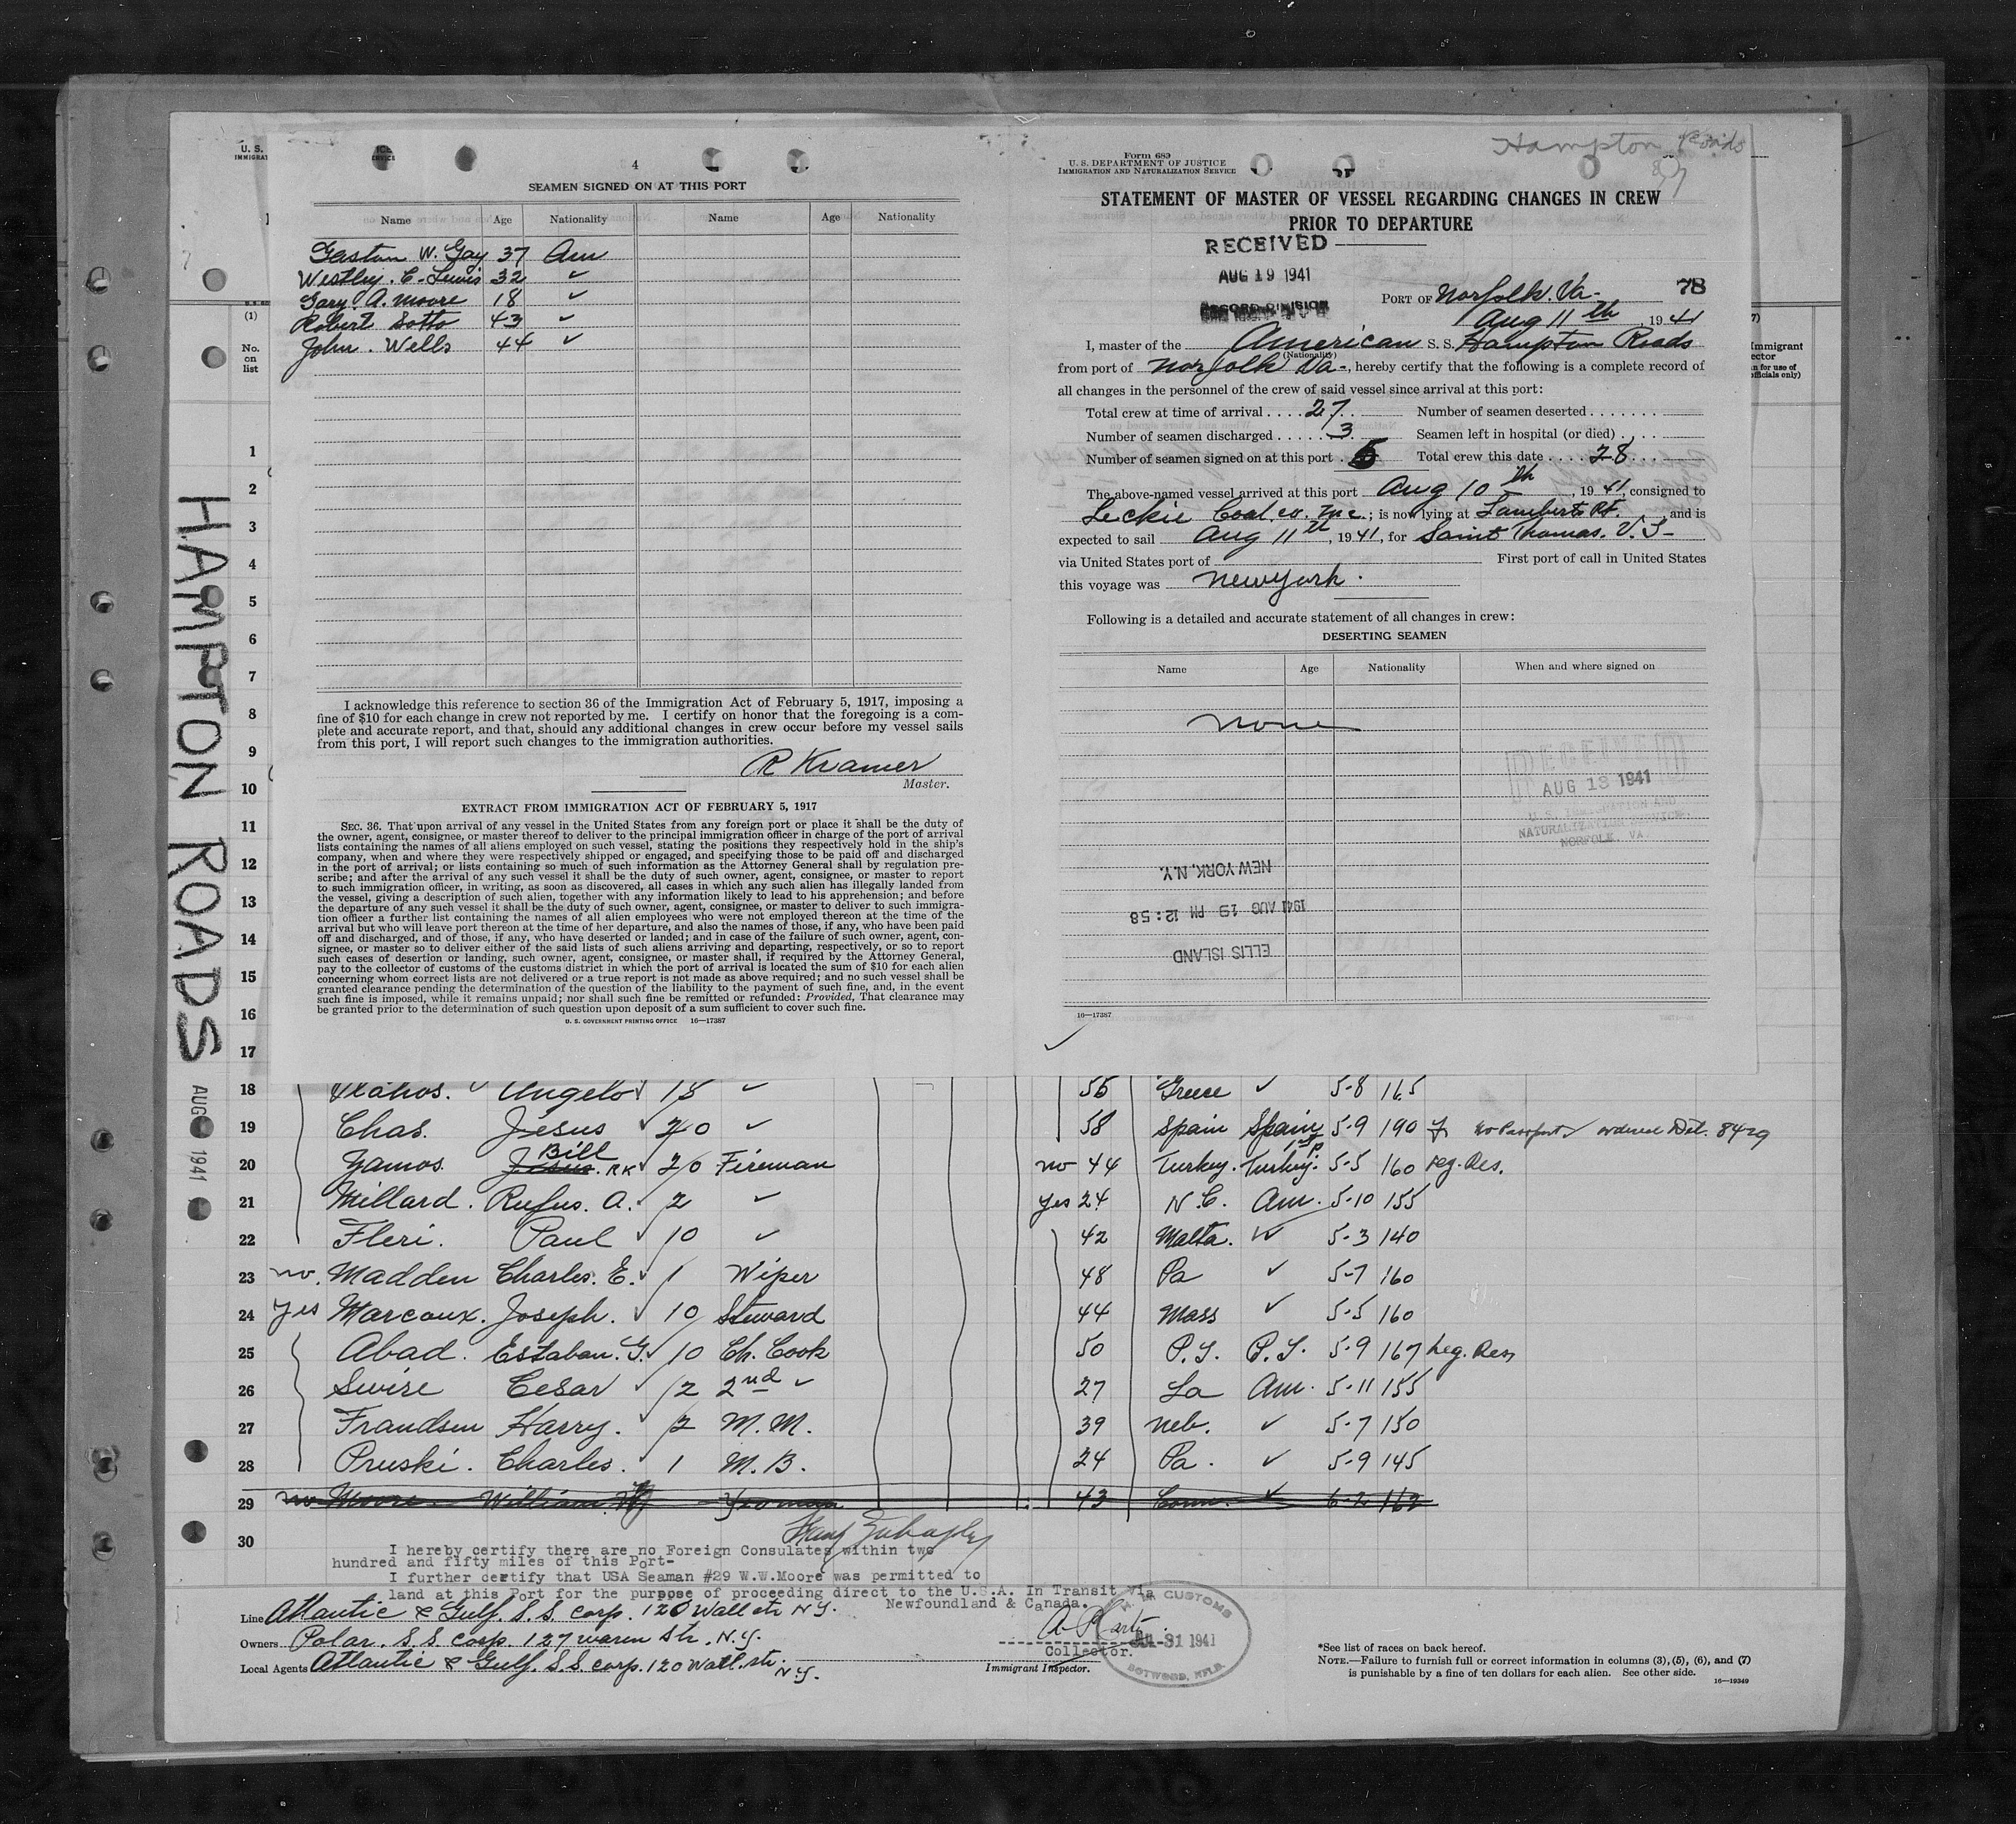 4
SEAMEN SIGNED ON AT THIS PORT
Name Age Nationality Name Age Nationality
Gaston W. Gay 37 Am
Westley. C. Lewis 32 ✓
Gary. A. Moore 18 ✓
Robert Sotto 43 ✓
John. Wells 44 ✓
I acknowledge this reference to section 36 of the Immigration Act of February 5, 1917, imposing a
fine of $10 for each change in crew not reported by me. I certify on honor that the foregoing is a com-
plete and accurate report, and that, should any additional changes in crew occur before my vessel sails
from this port, I will report such changes to the immigration authorities.
R Kramer
Master.
EXTRACT FROM IMMIGRATION ACT OF FEBRUARY 5, 1917
SEC. 36. That upon arrival of any vessel in the United States from any foreign port or place it shall be the duty of
the owner, agent, consignee, or master thereof to deliver to the principal immigration officer in charge of the port of arrival
lists containing the names of all aliens employed on such vessel, stating the positions they respectively hold in the ship's
company, when and where they were respectively shipped or engaged, and specifying those to be paid off and discharged
in the port of arrival; or lists containing so much of such information as the Attorney General shall by regulation pre-
scribe; and after the arrival of any such vessel it shall be the duty of such owner, agent, consignee, or master to report
to such immigration officer, in writing, as soon as discovered, all cases in which any such alien has illegally landed from
the vessel, giving a description of such alien, together with any information likely to lead to his apprehension; and before
the departure of any such vessel it shall be the duty of such owner, agent, consignee, or master to deliver to such immigra-
tion officer a further list containing the names of all alien employees who were not employed thereon at the time of the
arrival but who will leave port thereon at the time of her departure, and also the names of those, if any, who have been paid
off and discharged, and of those, if any, who have deserted or landed; and in case of the failure of such owner, agent, con-
signee, or master so to deliver either of the said lists of such aliens arriving and departing, respectively, or so to report
such cases of desertion or landing, such owner, agent, consignee, or master shall, if required by the Attorney General,
pay to the collector of customs of the customs district in which the port of arrival is located the sum of $10 for each alien
concerning whom correct lists are not delivered or a true report is not made as above required; and no such vessel shall be
granted clearance pending the determination of the question of the liability to the payment of such fine, and, in the event
such fine is imposed, while it remains unpaid; nor shall such fine be remitted or refunded: Provided, That clearance may
be granted prior to the determination of such question upon deposit of a sum sufficient to cover such fine.
U. S. GOVERNMENT PRINTING OFFICE 16—17387
Hampton Roads
Form 689
U. S. DEPARTMENT OF JUSTICE
IMMIGRATION AND NATURALIZATION SERVICE
STATEMENT OF MASTER OF VESSEL REGARDING CHANGES IN CREW
PRIOR TO DEPARTURE
RECEIVED
AUG 19 1941
RECORD DIVISION
PORT OF Norfolk. Va- 78
Aug 11th 1941
I, master of the American S. S. Hampton Roads
(Nationality)
from port of Norfolk Va-, hereby certify that the following is a complete record of
all changes in the personnel of the crew of said vessel since arrival at this port:
Total crew at time of arrival .... 27. Number of seamen deserted .......
Number of seamen discharged ..... 3 Seamen left in hospital (or died) ....
Number of seamen signed on at this port . 5 Total crew this date .... 28 ...
The above-named vessel arrived at this port Aug 10th, 1941, consigned to
Leckie Coal. co. Inc.; is now lying at Lamberts Pt. and is
expected to sail Aug 11th, 1941, for Saint Thomas. V. I-
via United States port of First port of call in United States
this voyage was Newyork.
Following is a detailed and accurate statement of all changes in crew:
DESERTING SEAMEN
Name Age Nationality When and where signed on
None
RECEIVED
AUG 13 1941
U. S. IMMIGRATION AND
NATURALIZATION SERVICE
NORFOLK, VA.
NEW YORK, N.Y.
1941 AUG 19 PM 12:58
ELLIS ISLAND
16—17387
U. S.
IMMIGRAT
ICE
SERVICE
(1)
No.
on
list
7)
Immigrant
ector
n for use of
officials only)
HAMPTON ROADS
AUG 1941
1
2
3
4
5
6
7
8
9
10
11
12
13
14
15
16
17
18 Vlahos. ✓ Angelo ✓ 15 ✓ 55 Greece ✓ 5-8 165
19 Chas. Jesus ✓ 20 ✓ 58 Spain Spain 5-9 190 No Passport ordered Det. 8429
20 Yamos. Jesus. Bill RK ✓ 20 Fireman no 44 Turkey. Turkey. 5-5 160 Leg. Res.
21 Millard. Rufus. A. ✓ 2 ✓ yes 24 N.C. Am. 5-10 155
22 Fleri. Paul ✓ 10 ✓ 42 Malta. ✓ 5-3 140
23 no. Madden Charles. E. ✓ 1 Wiper 48 Pa ✓ 5-7 160
24 yes Marcoux. Joseph. ✓ 10 Steward 44 Mass ✓ 5-5 160
25 Abad. Estaban. G. ✓ 10 Ch. Cook 50 P.I. P.I. 5-9 167 Leg. Res
26 Swire Cesar ✓ 12 2nd ✓ 27 La Am. 5-11 155
27 Frandsen Harry. ✓ 2 M. M. 39 Neb. ✓ 5-7 150
28 Pruski. Charles. ✓ 1 M. B. 24 Pa. ✓ 5-9 145
29 no Moore. William W Yeoman 43 Conn. ✓ 6-2 162
30
I hereby certify there are no Foreign Consulates within two
hundred and fifty miles of this Port-
I further certify that USA Seaman #29 W.W.Moore was permitted to
land at this Port for the purpose of proceeding direct to the U.S.A. In Transit via
Newfoundland & Canada.
Line Atlantic & Gulf. S. S. Corp. 120 Wall str N Y.
Owners Polar. S.S. Corp. 127 waren Str. N.Y.
Local Agents Atlantic & Gulf. S.S. corp. 120 Wall. str. N.Y.
Collector.
Immigrant Inspector.
H. M. CUSTOMS
JUL 31 1941
BOTWOOD, NFLD.
*See list of races on back hereof.
NOTE.—Failure to furnish full or correct information in columns (3), (5), (6), and (7)
is punishable by a fine of ten dollars for each alien. See other side.
16—19349